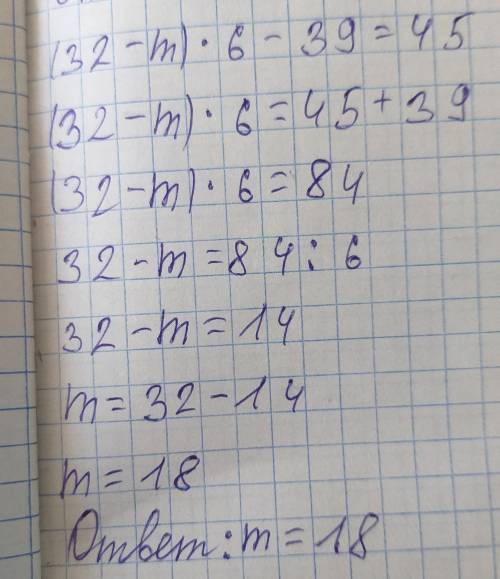 (32 - m) · 6 - 39 = 45
(32 - m) · 6 = 45 + 39
(32 - m) · 6 = 84
32 - m = 84 : 6
32 - m = 14
m = 32 - 14
m = 18
Ответ: m = 18